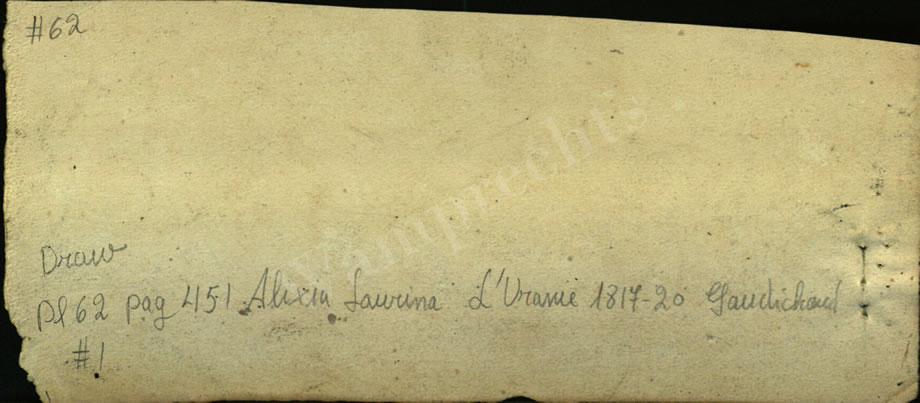 #62
Vamprechts
Draw
Pl 62 pag 451 Alixia Laurina L'Uranie 1817-20 Gaudichaud
#1